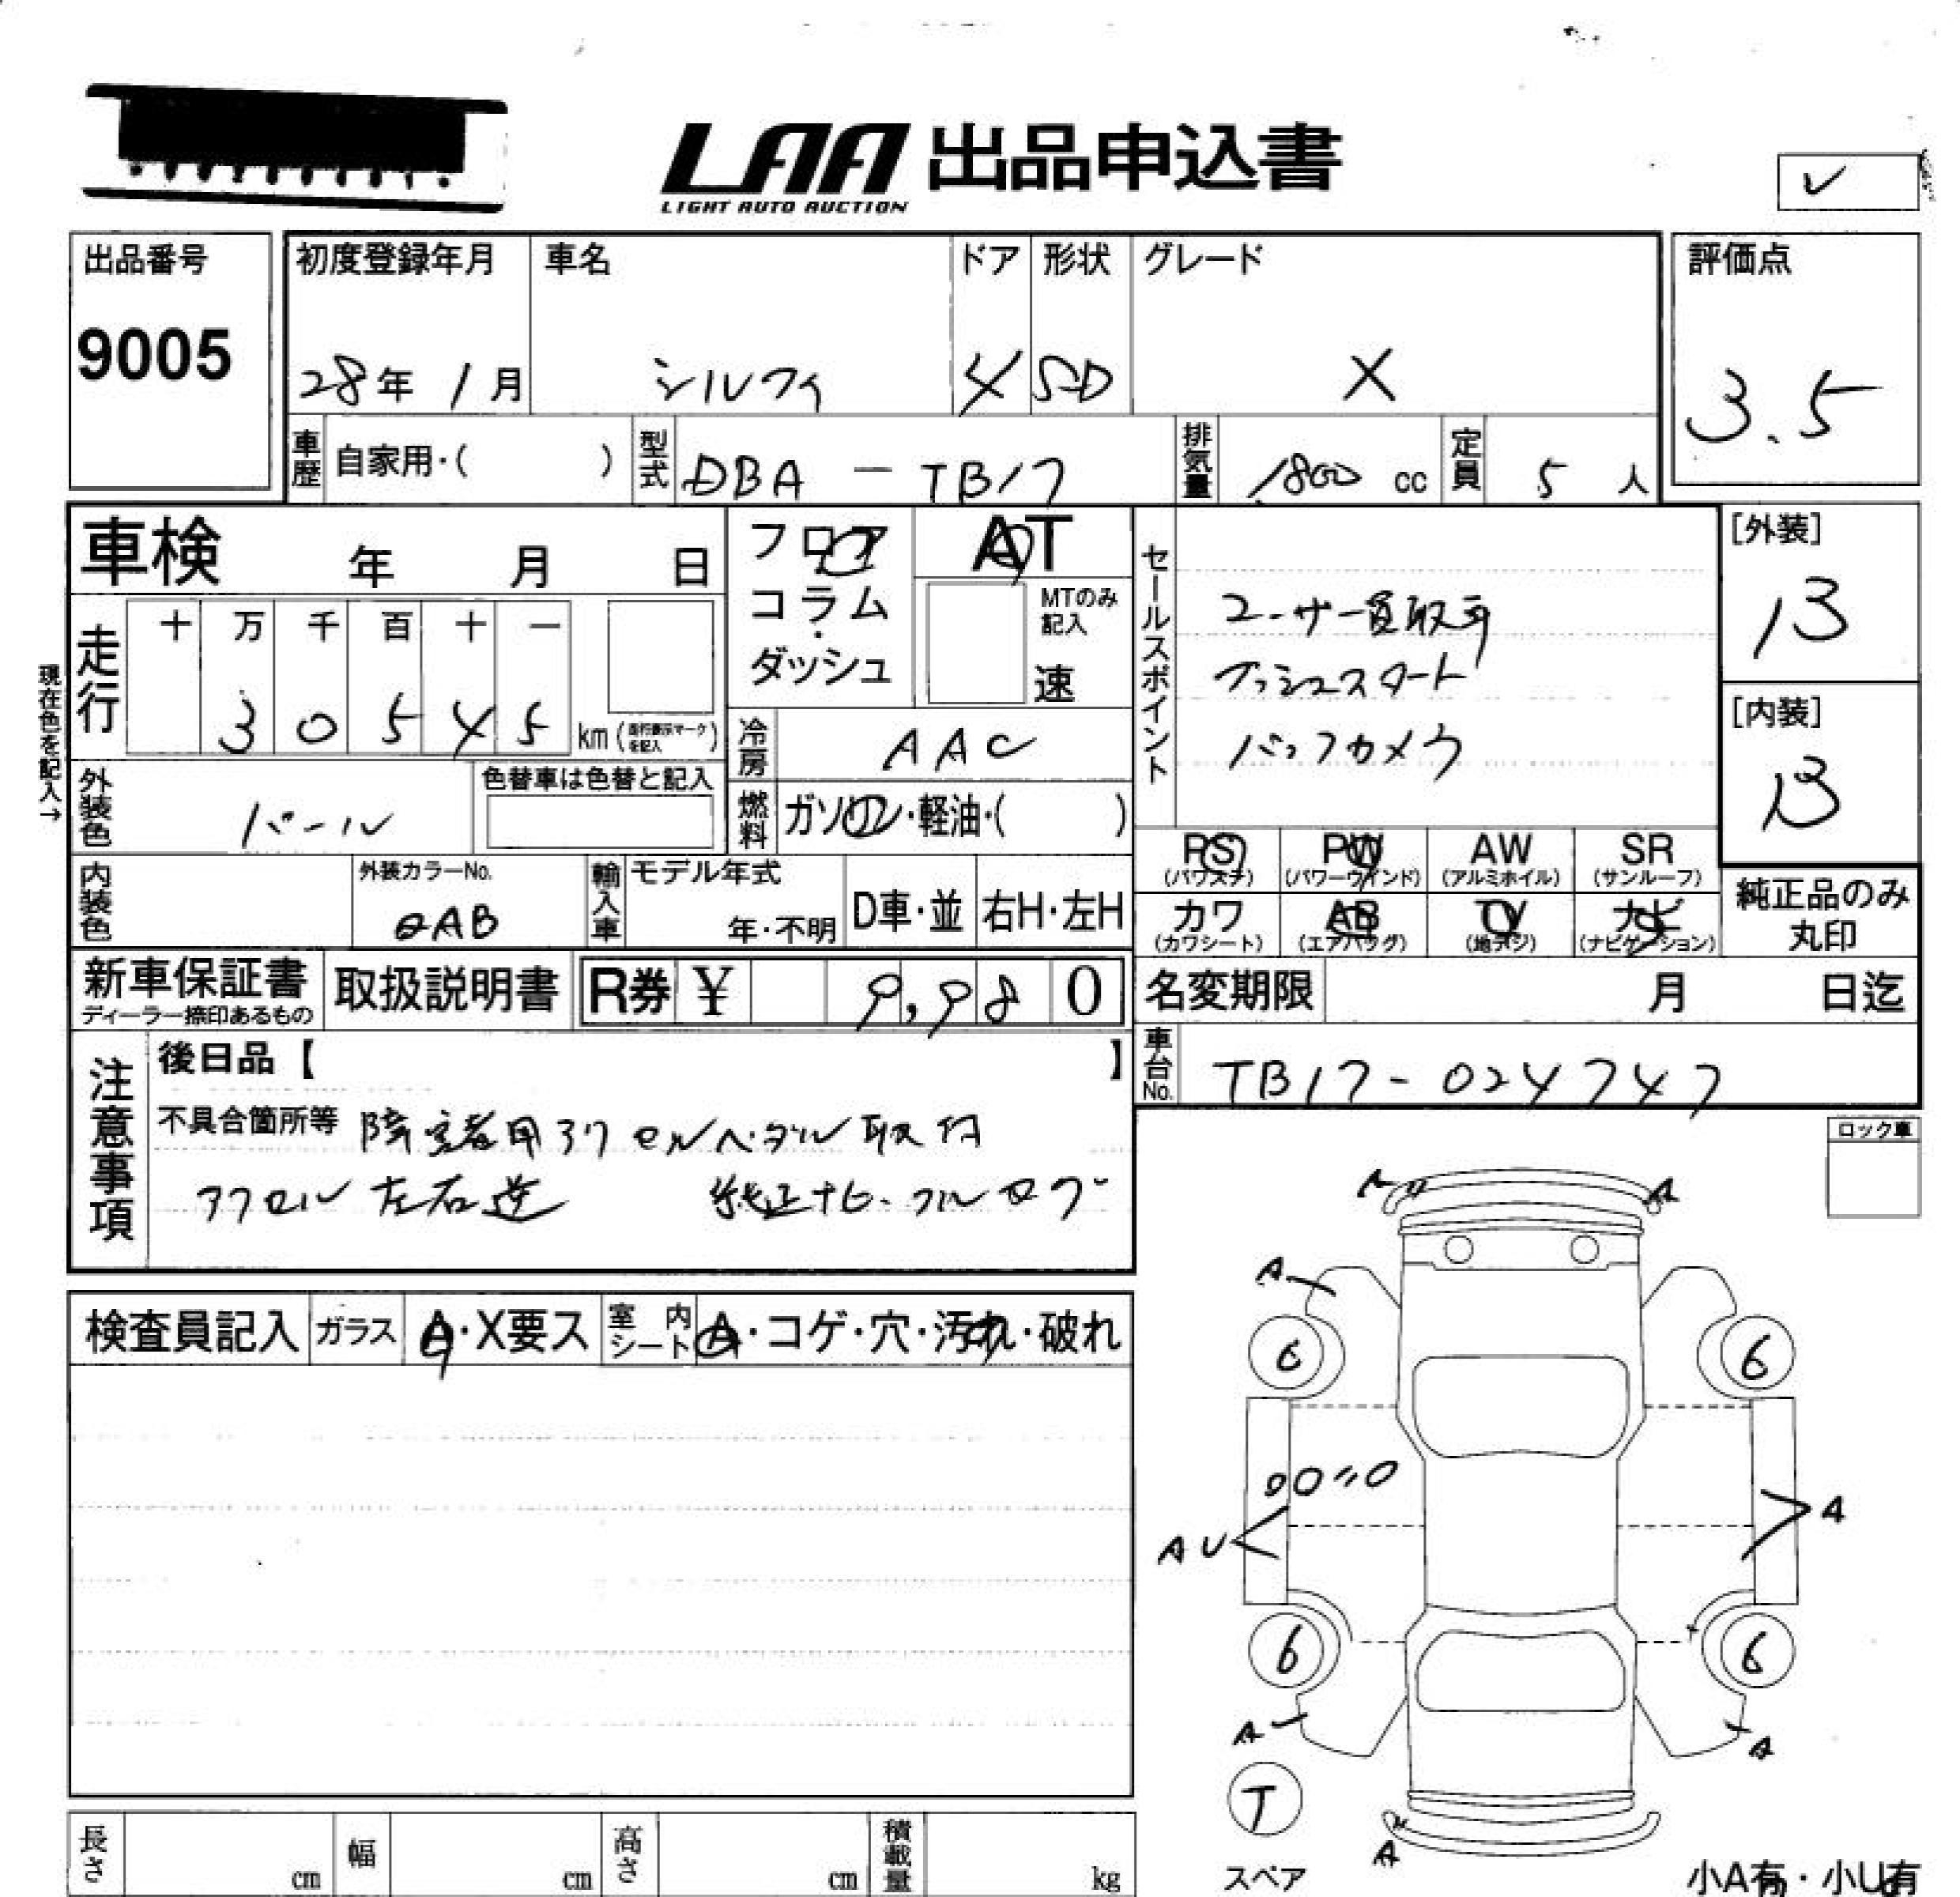 LAA 出品申込書
LIGHT AUTO AUCTION
レ
出品番号
9005
初度登録年月
28年 1月
車名
シルフィ
ドア
4
形状
SD
グレード
X
評価点
3.5
車歴
自家用・( )
型式
DBA - TB17
排気量
1800 cc
定員
5 人
車検 年 月 日
走行
十 万 千 百 十 一
3 0 5 4 5
km(
を記入
)
現在色を記入→
外装色
パール
色替車は色替と記入
内装色
外装カラーNo.
QAB
フロア
コラム
・
ダッシュ
AT
MTのみ
記入
速
冷房
AAC
燃料
ガソリン・軽油・( )
輸入車
モデル年式
年・不明
D車・並
右H・左H
セールスポイント
ユーザー買取車
プッシュスタート
バックカメラ
[外装]
13
[内装]
B
PS
(パワステ)
PW
(パワーウインド)
AW
(アルミホイル)
SR
(サンルーフ)
カワ
(カワシート)
AB
(エアバッグ)
TV
(地デジ)
ナビ
(ナビゲーション)
純正品のみ
丸印
新車保証書
ディーラー捺印あるもの
取扱説明書
R券 ¥ 9,980
名変期限 月 日迄
車台No.
TB17-024747
注意事項
後日品【 】
不具合箇所等 障害者用アクセルペダル取付
アクセル左右逆 純正ナビ・フルセグ
ロック車
検査員記入
ガラス
A・X要ス
室内シート
A・コゲ・穴・汚れ・破れ
A A
A
6 6
AU A
6 6
A A
T
A
スペア
小A有・小U有
長さ cm
幅 cm
高さ cm
積載量 kg